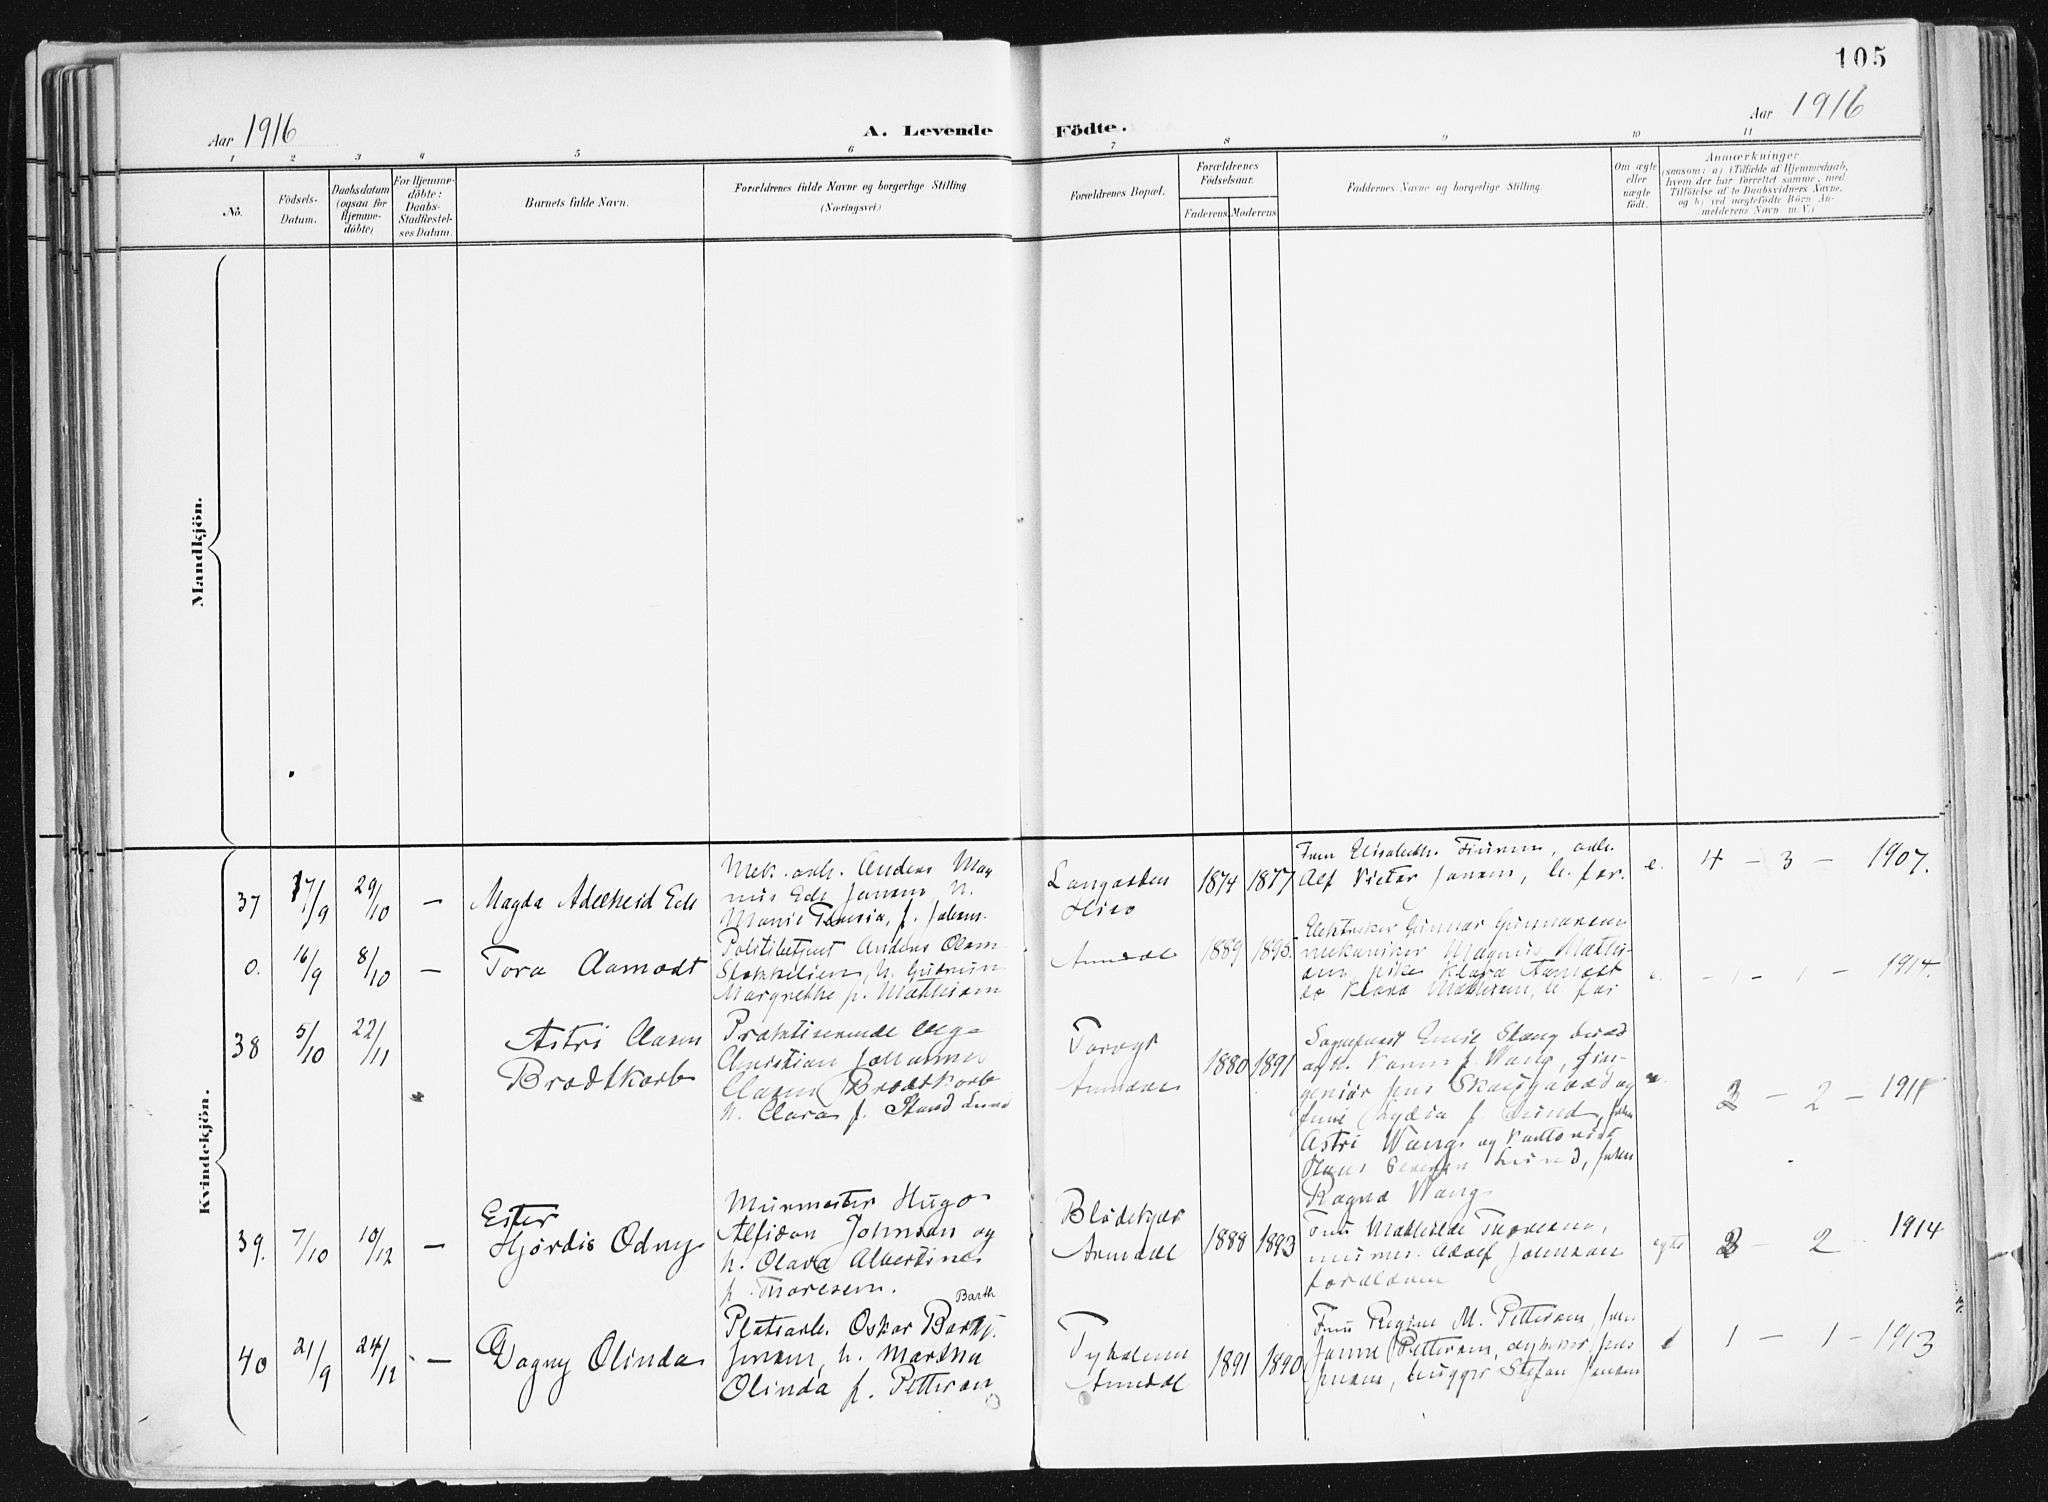 105
Aar 1916
A. Levende Födte.
Aar 1916
1 2 3 4 5 6 7 8 9 10 11
No.
Födsels-
Datum.
Daabsdatum
(ogsaa for
Hjemme-
döbte)
For Hjemme-
döbte:
Daabs-
Stadfæstel-
ses Datum.
Barnets fulde Navn.
Forældrenes fulde Navne og borgerlige Stilling
(Næringsvei.)
Forældrenes Bopæl.
Forældrenes
Födselsaar.
Faderens Moderens
Faddernes Navne og borgerlige Stilling.
Om ægte
eller
uægte
födt.
Anmærkninger
(saasom: a) i Tilfælde af Hjemmedaab,
hvem der har forrettet samme, med
Tilföielse af to Daabsvidners Navne,
og b) ved uægtefödte Börn An-
melderens Navn m. V.)
Mandkjön.
Kvindekjön.
37
17/9
29/10
—
Magda Adelheid Eds
Mek. arb. Anders Mag
nus Eds Jensen h.
Marie Teresia, f. Johans.
Langesten
Hisö
1874 1877
Fru Elisabeth, arb.
Alf Victor Jensen, b. far.
e.
4 — 3 — 1907.
0.
16/9
8/10
—
Tora Aamodt
Politibetjent Anders Olsen
Stokkelien, h. Gudrun
Margrethe f. Mathisen
Arendal
1889 1895.
Elektriker Gunnar Gunnarsen
mekaniker Magnus Mathi-
sen, pike Klara Aamodt
do Klara Mathisen, b. far
e.
— 1 — 1 — 1914.
38
5/10
22/11
Astri Claren
Brodtkorb
Praktiserende læge
Christian Johannes
Claren Brodtkorb
h. Clara f. Lund
Torvet
Arendal
1880 1891
Sogneprest Skang
h. f. Wang, in-
geniör Jens og
frue Lydia f. Lund, frk
Astri Wang og
Hans Severin Lund, frøken
Ragna Wang
3 — 2 — 1911
39.
7/10
10/12
—
Ester
Hjördis Odny
Murmester Hugo
Alfidon Johnsen og
h. Olava Albertine
f. Thoresen.
Blödekjær
Arendal
1888 1893
Fru Mathilde Thoresen,
murmes. Adolf Johnsen
foreldrene
egte
3 — 2 1914
40
21/9
24/12
—
Dagny Olinda
Barth
Pladsarb. Oskar Barth
Jensen, h. Martha
Olinda f. Pettersen
Tyholmen
Arendal
1891 1890
Frue Regine M. Pettersen, frk
Janne Pettersen, Jens
Jensen, brygger Stefan Jensen
e
1 — 1 — 1913